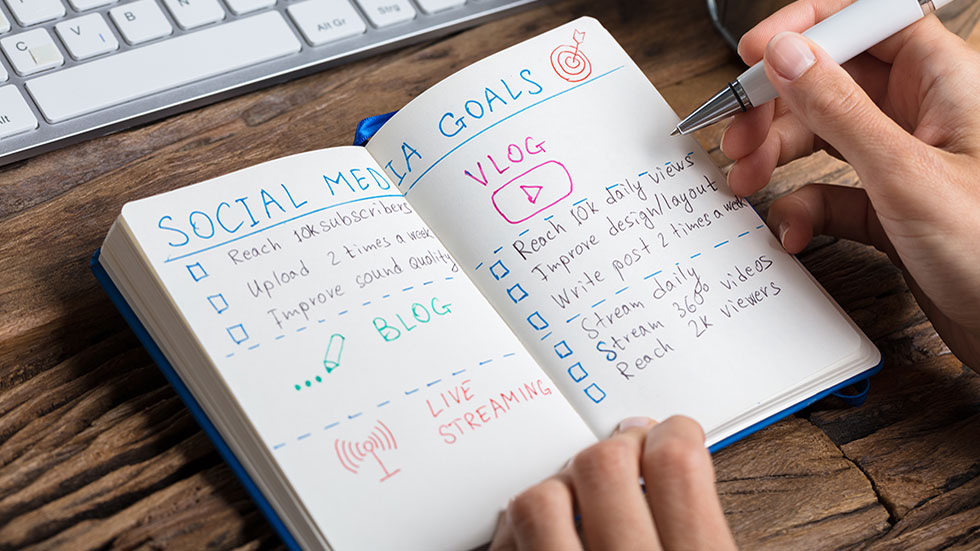 B
N
V
C
Alt
Alt Gr
Strg
SOCIAL MEDIA GOALS
Reach 10k subscribers
Upload 2 times a week
Improve sound quality
BLOG
LIVE
STREAMING
VLOG
Reach 10k daily views
Improve design/layout
Write post 2 times a week
Stream daily
Stream 360° videos
Reach 2k viewers